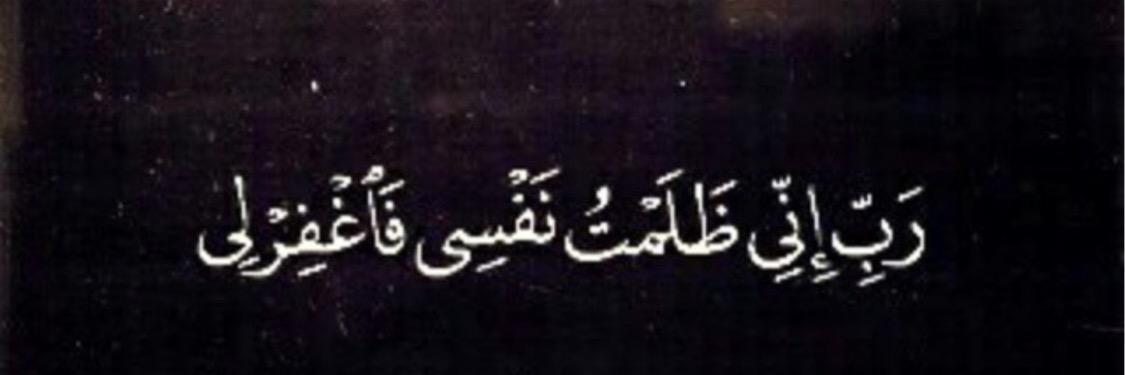 رَبِّ إِنِّي ظَلَمْتُ نَفْسِى فَٱغْفِرْ لِى